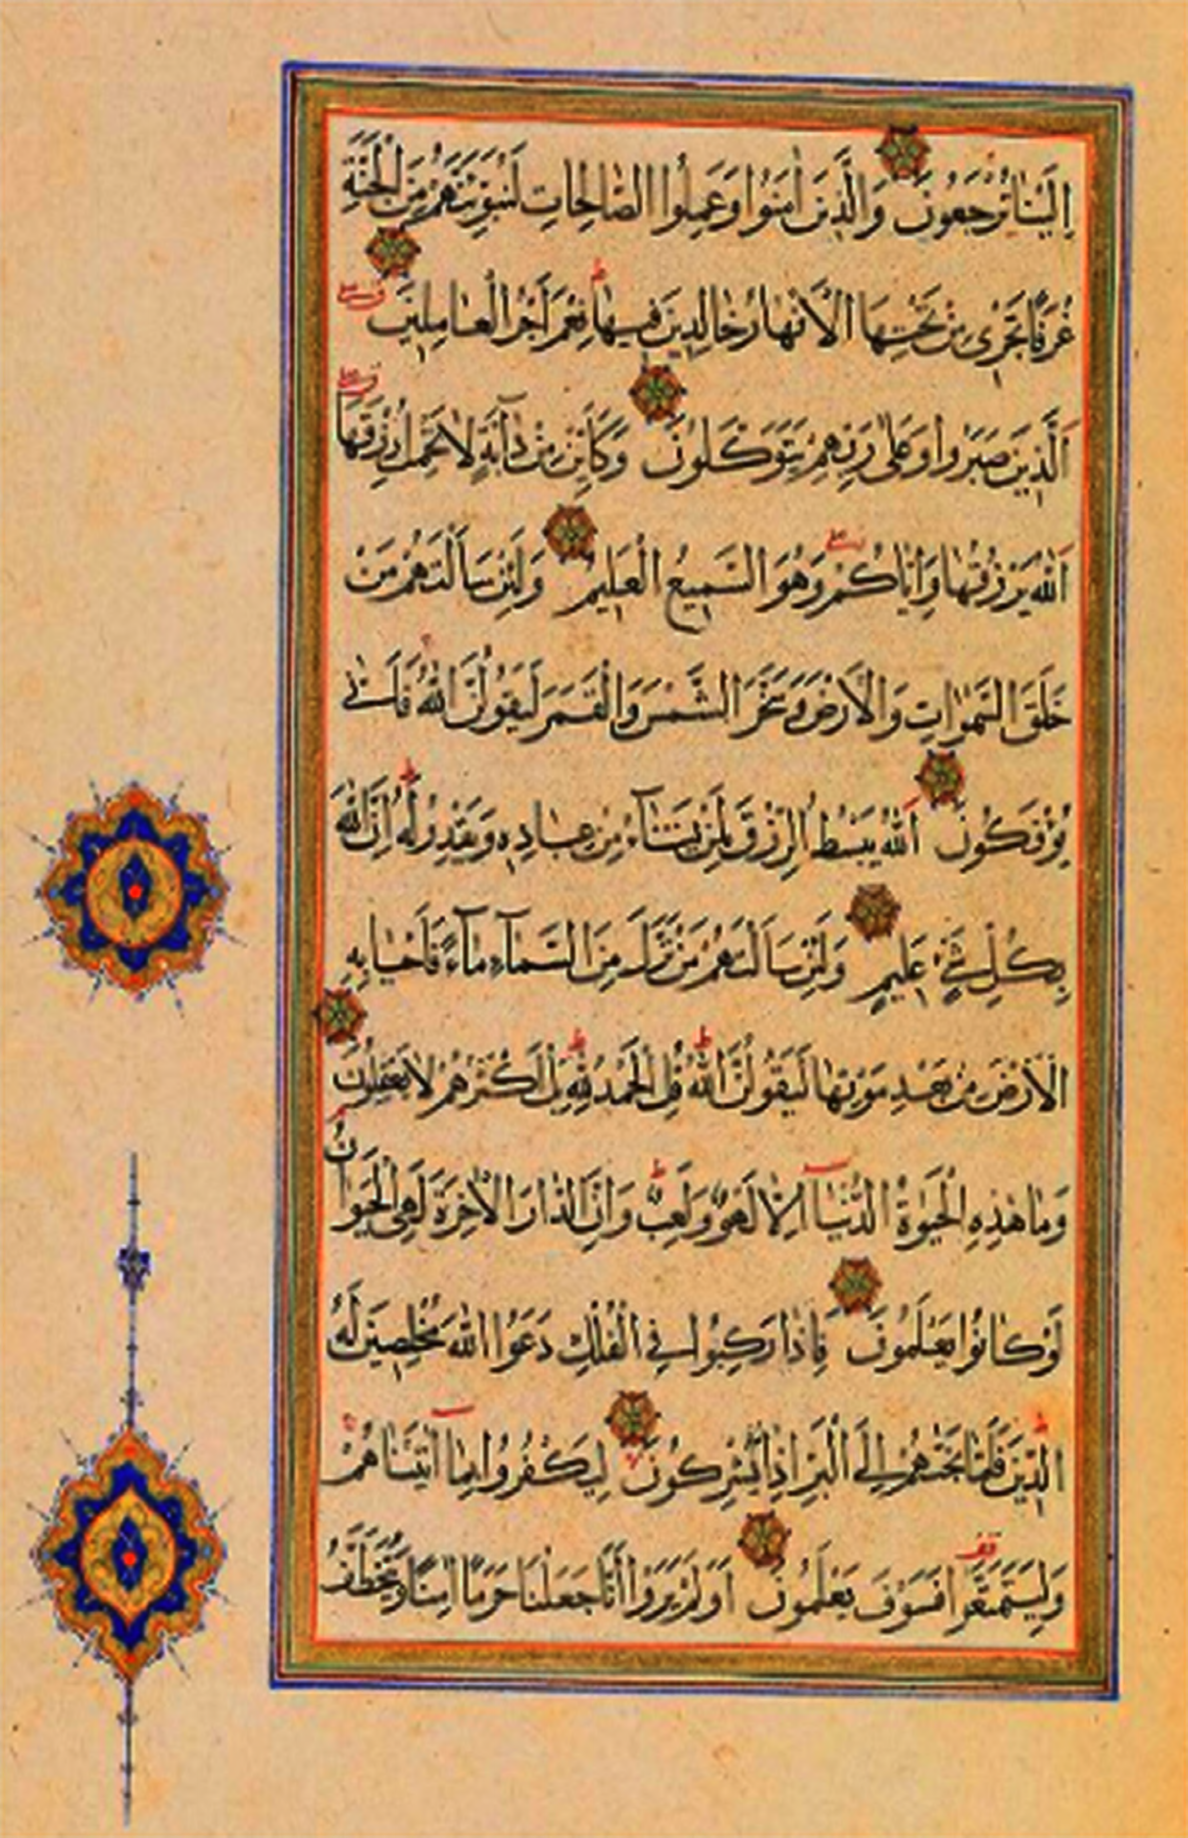 اِلَيْنَا تُرْجَعُونَ وَالَّذِينَ اٰمَنُوا وَعَمِلُوا الصَّالِحَاتِ لَنُبَوِّئَنَّهُمْ مِنَ الْجَنَّةِ
غُرَفًا تَجْرِى مِنْ تَحْتِهَا الْاَنْهَارُ خَالِدِينَ فِيهَا نِعْمَ اَجْرُ الْعَامِلِينَ
اَلَّذِينَ صَبَرُوا وَعَلٰى رَبِّهِمْ يَتَوَكَّلُونَ وَكَاَيِّنْ مِنْ دَآبَّةٍ لَا تَحْمِلُ رِزْقَهَا
اَللّٰهُ يَرْزُقُهَا وَاِيَّاكُمْ وَهُوَ السَّمِيعُ الْعَلِيمُ وَلَئِنْ سَاَلْتَهُمْ مَنْ
خَلَقَ السَّمٰوَاتِ وَالْاَرْضَ وَسَخَّرَ الشَّمْسَ وَالْقَمَرَ لَيَقُولُنَّ اللّٰهُ فَاَنّٰى
يُؤْفَكُونَ اَللّٰهُ يَبْسُطُ الرِّزْقَ لِمَنْ يَشَآءُ مِنْ عِبَادِهِ وَيَقْدِرُ لَهُ اِنَّ اللّٰهَ
بِكُلِّ شَىْءٍ عَلِيمٌ وَلَئِنْ سَاَلْتَهُمْ مَنْ نَزَّلَ مِنَ السَّمَآءِ مَآءً فَاَحْيَا بِهِ
الْاَرْضَ مِنْ بَعْدِ مَوْتِهَا لَيَقُولُنَّ اللّٰهُ قُلِ الْحَمْدُ لِلّٰهِ بَلْ اَكْثَرُهُمْ لَا يَعْقِلُونَ
وَمَا هٰذِهِ الْحَيٰوةُ الدُّنْيَآ اِلَّا لَهْوٌ وَلَعِبٌ وَاِنَّ الدَّارَ الْاٰخِرَةَ لَهِىَ الْحَيَوَانُ
لَوْ كَانُوا يَعْلَمُونَ فَاِذَا رَكِبُوا فِى الْفُلْكِ دَعَوُا اللّٰهَ مُخْلِصِينَ لَهُ
الدِّينَ فَلَمَّا نَجّٰيهُمْ اِلَى الْبَرِّ اِذَا هُمْ يُشْرِكُونَ لِيَكْفُرُوا بِمَآ اٰتَيْنَاهُمْ
وَلِيَتَمَتَّعُوا فَسَوْفَ يَعْلَمُونَ اَوَلَمْ يَرَوْا اَنَّا جَعَلْنَا حَرَمًا اٰمِنًا وَيُتَخَطَّفُ